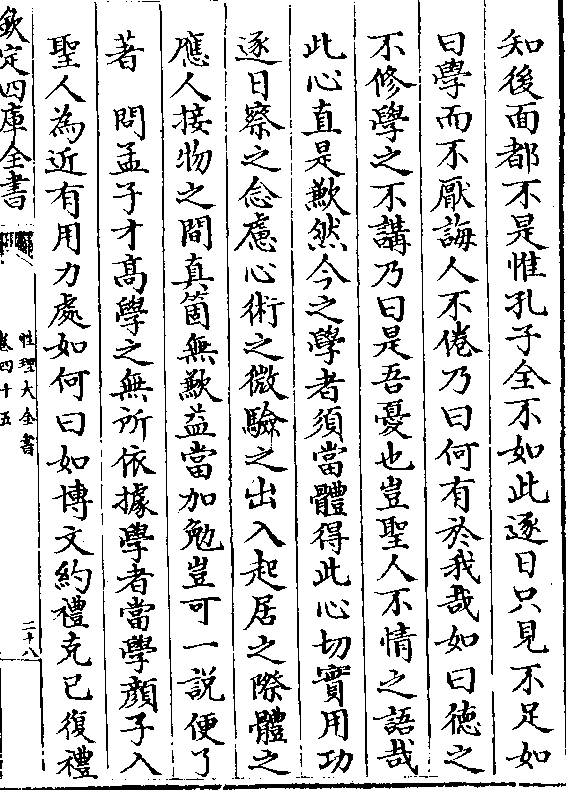 知後面都不是惟孔子全不如此逐日只見不足如
曰學而不厭誨人不倦乃曰何有於我哉如曰德之
不修學之不講乃曰是吾憂也豈聖人不情之語哉
此心直是歉然今之學者須當體得此心切實用功
逐日察之念慮心術之微驗之出入起居之際體之
應人接物之間真箇無歉益當加勉豈可一說便了
著　問孟子才高學之無所依據學者當學顔子入
聖人為近有用力處如何曰如博文約禮克已復禮
欽定四庫全書
性理大全書
卷四十五
二十八